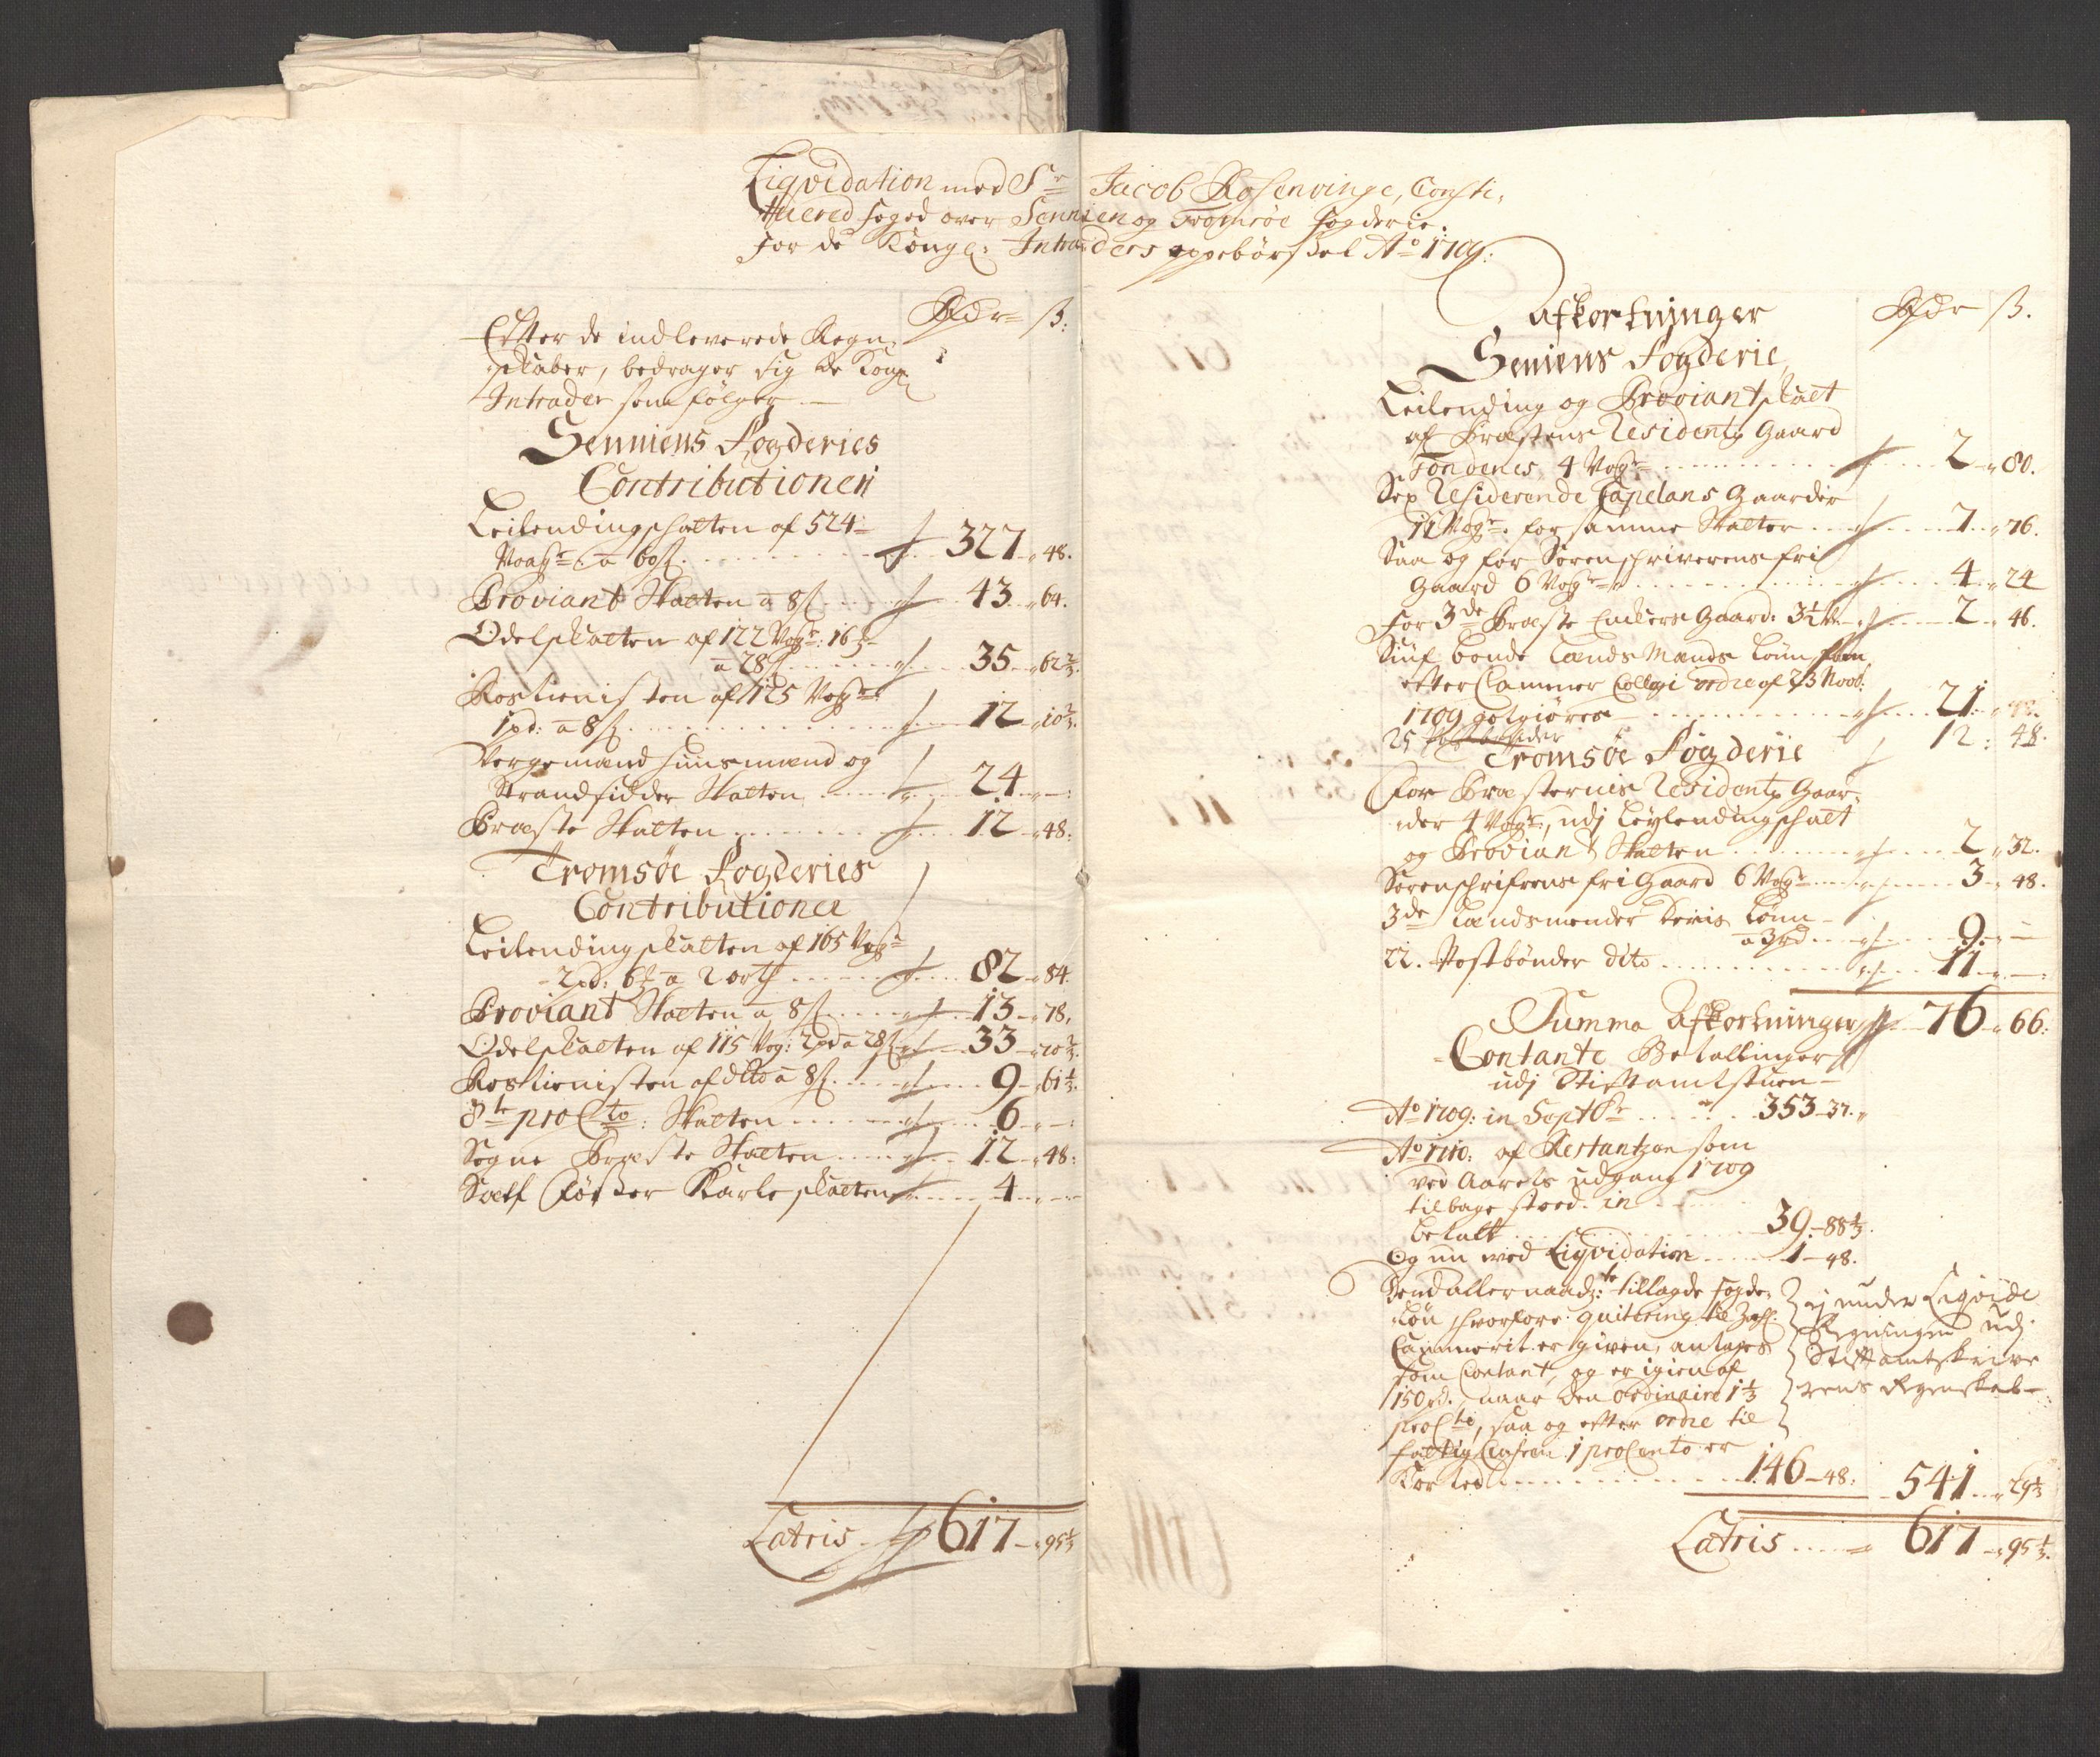 Liqvidation med Sr Jacob Rosenvinge, Consti,
tuered foged over Sennien og Tromsøe fogderie.
for de Kongl: Intraders oppebørssel Ao 1709:
Rdr ß:
Effter de indleverede Regn,
skaber, bedrager sig de Kongl
Intrader som følger
Senniens Fogderies
Contributioner
Leilendingschatten af 524
Voger a 60ß 327 48.
Proviant Skatten a 8ß 43 64.
Odelskatten af 122 Voger: 16
a 28ß 35 62⅔.
Rostienisten af 125 Voger
1pd: a 8ß 12 10⅔.
Borgemænd huusmænd og
Strandsidder Skatten 24 -:
Præste Skatten 12 48:
Tromsøe Fogderies
Contributioner
Leilendingskatten af 165 Voger
2pd: 6 a 2 ort 82 84.
Proviant Skatten a 8ß 13 78,
Odelskatten af 115 Vog: 2pd a 28ß 33 20⅔.
Rostienisten af dito a 8ß 9 61⅓.
3te pro Cto: Skatten 6 -:
Sogne Præste Skatten 12 48:
Karle skatten 4 -
Latris 617 95⅓
Afkortninger Rdr ß.
Seniens Fogderie
Leilending og Proviantskatt
af Præstens Residentz Gaard
Tondenes 4 Voger 2 80.
Residerende Capelans Gaarder
11 Voger for samme Skatter 7 76.
Saa og for Sorenschriverens fri
Gaard 6 Voger 4 24
For 3de Præste Enckers Gaard: 3½ 2 46.
bonde Lænds Mænds Lønn som
efter Cammer Collegi ordre af 23 Novb:
1709 gotgiøres 21
25 12: 48.
Tromsøe Fogderie
For Præsternis Residentz Gaar,
der 4 Voger, udj Leylendingschatt
og Proviant Skatten 2 32.
Sorenschrifrens fri Gaard 6 Voger 3 48.
3de Lændsmænder deris Lønn
a 3rd 9 -
22. Postbønder dito 11 -:
Summa Afkortninger 76 66:
Contante Betallinger
udj Stiftamtstuen
Ao 1709: in Septbr 353 37.
Ao 1710: af Restantzen som
ved Aarets udgang 1709
tilbage stoed. in
betalt 39 88⅓.
Og nu ved Liqvidation 1 48.
Dend allernaadte: tillagde fogde,
Løn hvorfore qvittering til Zahl
Cammerit er given, antages
som Contant, og er igien af
150rd. naar den ordinaire 1⅓
pro Cto, saa og efter ordre til
fattig Cassen 1 proCento er
Kortted 146 48: 541 29⅓
ej under Liqvide
Regningen udj
Stiftamtskrive
rens Regenskab
Latris 617 95⅓.